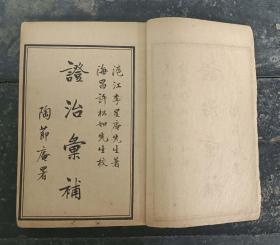 浥江李星庵先生著
海昌許松如先生校
證治彙補
陶節庵署